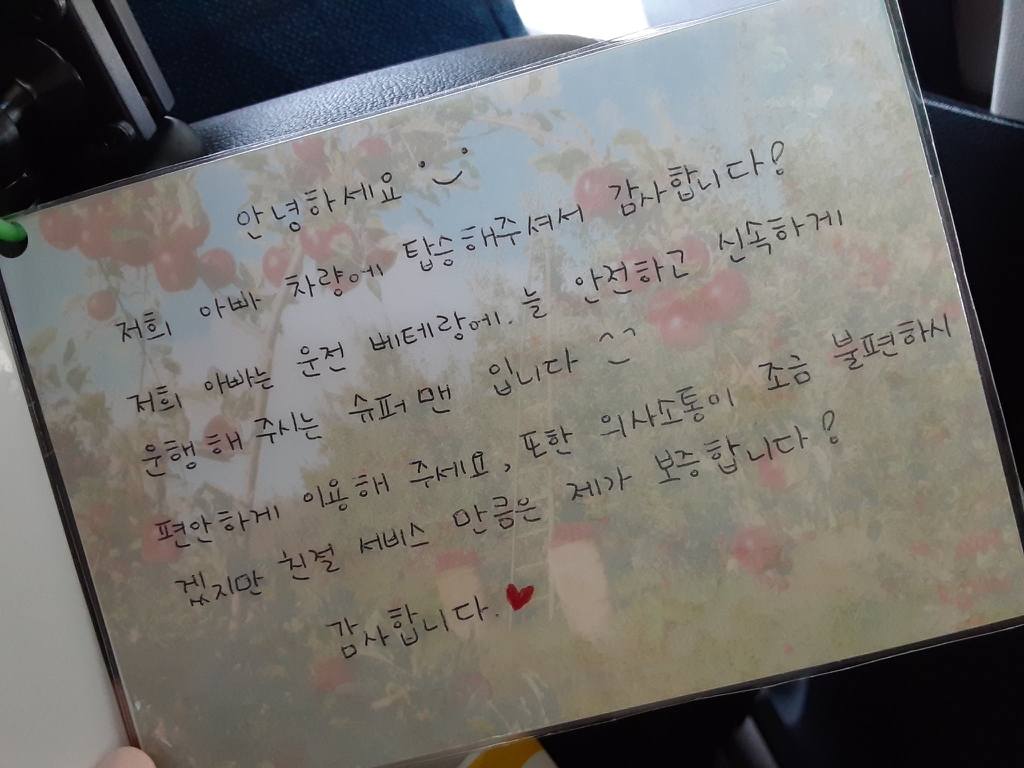 안녕하세요 :)
저희 아빠 차량에 탑승해주셔서 감사합니다!
저희 아빠는 운전 베테랑에. 늘 안전하고 신속하게
운행 해 주시는 슈퍼맨 입니다 ^^
편안하게 이용해 주세요, 또한 의사소통이 조금 불편하시
겠지만 친절 서비스 만큼은 제가 보증합니다!
감사합니다.♥